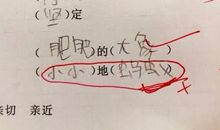 (坚)定
(肥肥)的(大象)
(小小)地(蚂蚁)
亲切 亲近